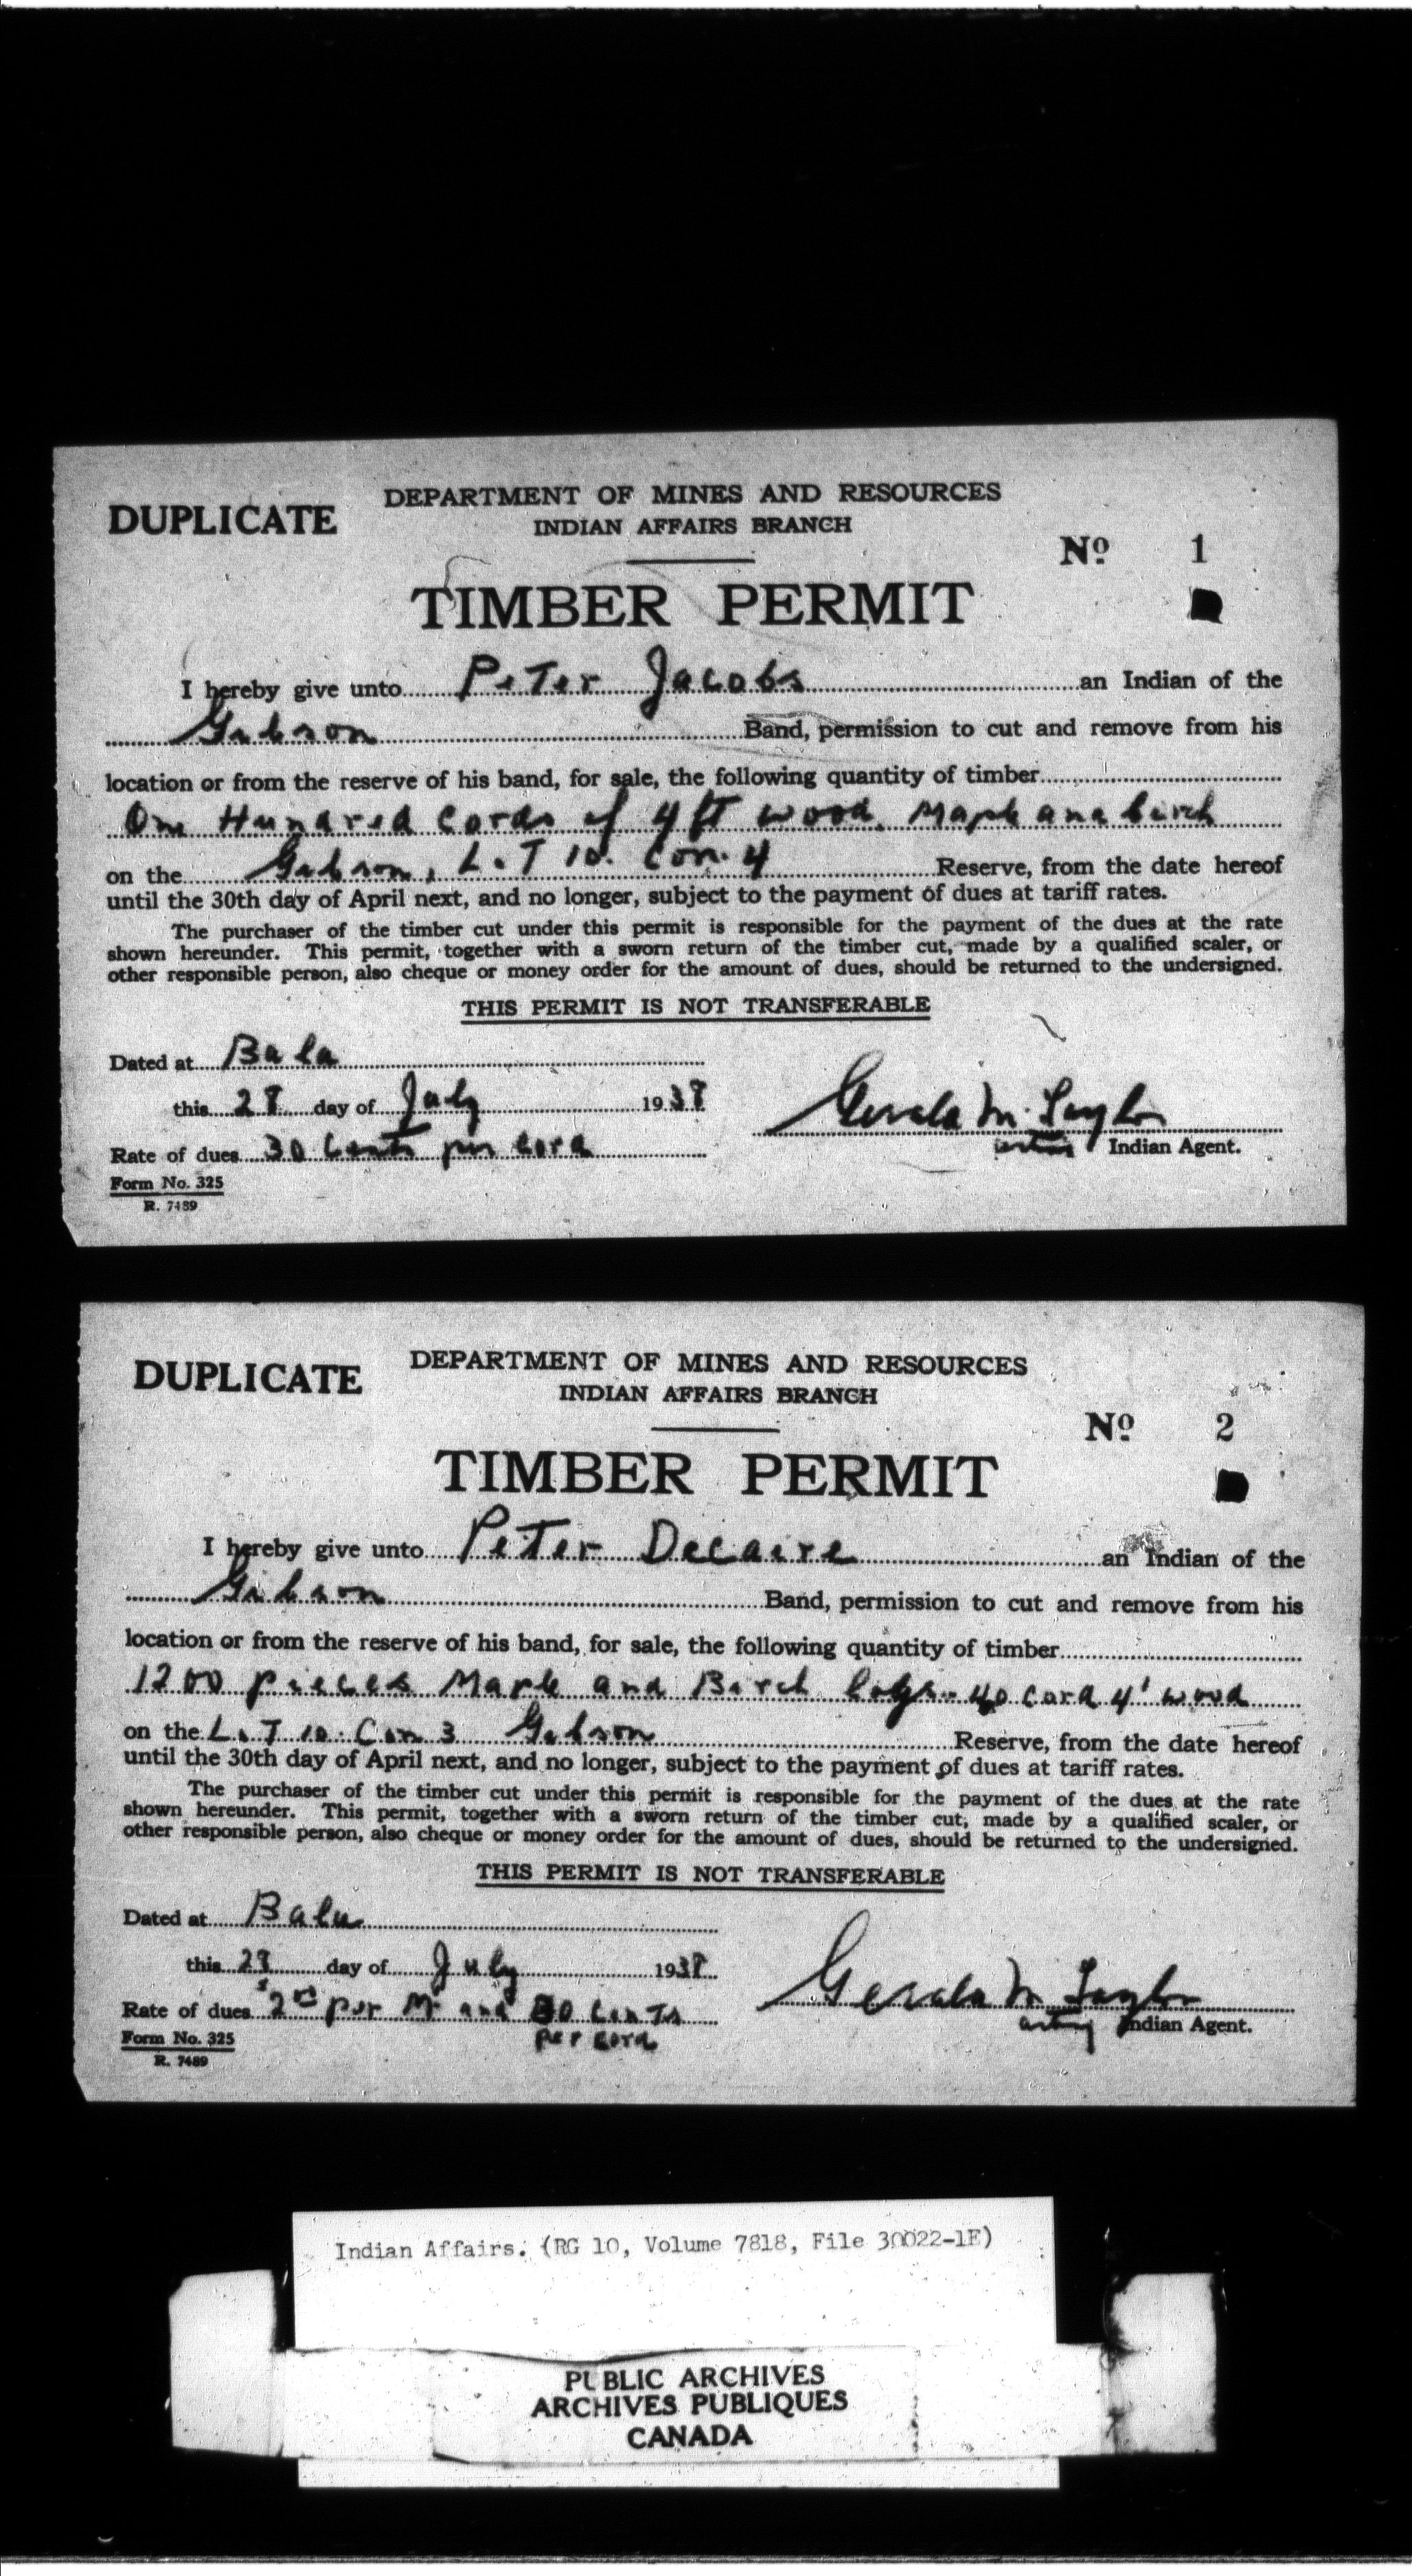 DUPLICATE
DEPARTMENT OF MINES AND RESOURCES
INDIAN AFFAIRS BRANCH
No 1
TIMBER PERMIT
I hereby give unto Peter Jacobs an Indian of the
Gibson Band, permission to cut and remove from his
location or from the reserve of his band, for sale, the following quantity of timber
One Hundred Cords of 4 ft wood. Maple and birch
on the Gibson, LoT 10. Con. 4 Reserve, from the date hereof
until the 30th day of April next, and no longer, subject to the payment of dues at tariff rates.
The purchaser of the timber cut under this permit is responsible for the payment of the dues at the rate
shown hereunder. This permit, together with a sworn return of the timber cut, made by a qualified scaler, or
other responsible person, also cheque or money order for the amount of dues, should be returned to the undersigned.
THIS PERMIT IS NOT TRANSFERABLE
Dated at Bala
this 28 day of July 1938
Gerald M. Taylor
acting Indian Agent.
Rate of dues 30 Cents per cord
Form No. 325
R. 7489
DUPLICATE
DEPARTMENT OF MINES AND RESOURCES
INDIAN AFFAIRS BRANCH
No 2
TIMBER PERMIT
I hereby give unto Peter Decaire an Indian of the
Gibson Band, permission to cut and remove from his
location or from the reserve of his band, for sale, the following quantity of timber
1200 pieces Maple and Birch logs - 40 cord 4' wood
on the LoT 10. Con 3 Gibson Reserve, from the date hereof
until the 30th day of April next, and no longer, subject to the payment of dues at tariff rates.
The purchaser of the timber cut under this permit is responsible for the payment of the dues at the rate
shown hereunder. This permit, together with a sworn return of the timber cut, made by a qualified scaler, or
other responsible person, also cheque or money order for the amount of dues, should be returned to the undersigned.
THIS PERMIT IS NOT TRANSFERABLE
Dated at Bala
this day of July 1938
Gerald M. Taylor
acting Indian Agent.
Rate of dues $2 00 per M and 30 Cents
per cord
Form No. 325
R. 7489
Indian Affairs. (RG 10, Volume 7818, File 30022-1E)
PUBLIC ARCHIVES
ARCHIVES PUBLIQUES
CANADA